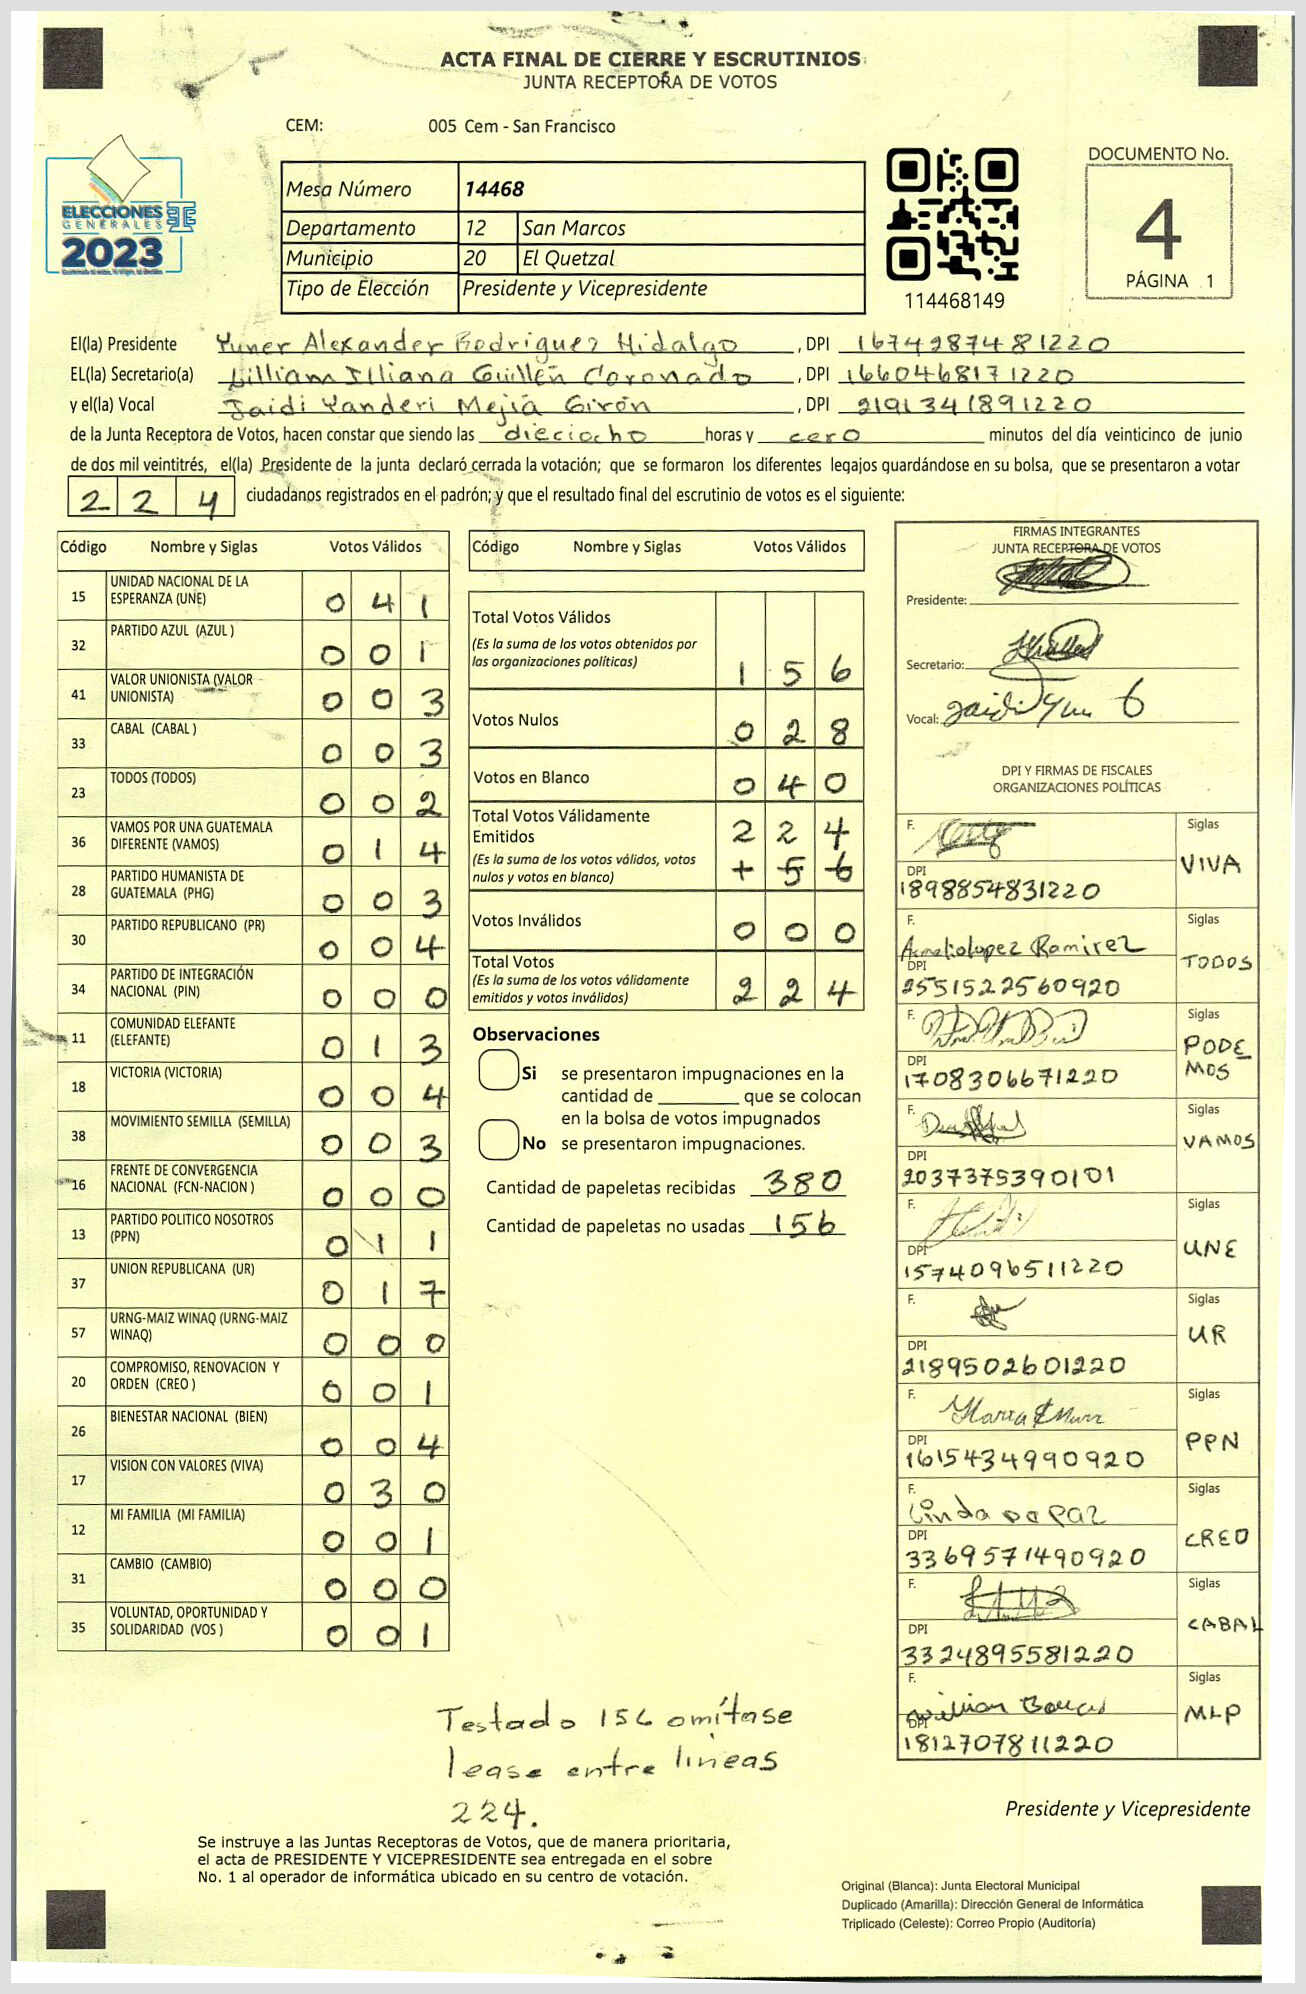 ACTA FINAL DE CIERRE Y ESCRUTINIOS
JUNTA RECEPTORA DE VOTOS
CEM: 005 Cem - San Francisco
ELECCIONES
GENERALES
2023
Mesa Número 14468
Departamento 12 San Marcos
Municipio 20 El Quetzal
Tipo de Elección Presidente y Vicepresidente
114468149
DOCUMENTO No.
4
PÁGINA 1
El(la) Presidente Yuner Alexander Rodriguez Hidalgo, DPI 1674287481220
EL(la) Secretario(a) Lilliam Illiana Guillén Coronado, DPI 1660468171220
y el(la) Vocal Jaidi Yanderi Mejiá Girón, DPI 2191341891220
de la Junta Receptora de Votos, hacen constar que siendo las dieciocho horas y cero minutos del día veinticinco de junio
de dos mil veintitrés, el(la) Presidente de la junta declaró cerrada la votación; que se formaron los diferentes legajos guardándose en su bolsa, que se presentaron a votar
224 ciudadanos registrados en el padrón; y que el resultado final del escrutinio de votos es el siguiente:
Código Nombre y Siglas Votos Válidos
15 UNIDAD NACIONAL DE LA ESPERANZA (UNE) 041
32 PARTIDO AZUL (AZUL ) 001
41 VALOR UNIONISTA (VALOR UNIONISTA) 003
33 CABAL (CABAL ) 003
23 TODOS (TODOS) 002
36 VAMOS POR UNA GUATEMALA DIFERENTE (VAMOS) 014
28 PARTIDO HUMANISTA DE GUATEMALA (PHG) 003
30 PARTIDO REPUBLICANO (PR) 004
34 PARTIDO DE INTEGRACIÓN NACIONAL (PIN) 000
11 COMUNIDAD ELEFANTE (ELEFANTE) 013
18 VICTORIA (VICTORIA) 004
38 MOVIMIENTO SEMILLA (SEMILLA) 003
16 FRENTE DE CONVERGENCIA NACIONAL (FCN-NACION ) 000
13 PARTIDO POLITICO NOSOTROS (PPN) 011
37 UNION REPUBLICANA (UR) 017
57 URNG-MAIZ WINAQ (URNG-MAIZ WINAQ) 000
20 COMPROMISO, RENOVACION Y ORDEN (CREO ) 001
26 BIENESTAR NACIONAL (BIEN) 004
17 VISION CON VALORES (VIVA) 030
12 MI FAMILIA (MI FAMILIA) 001
31 CAMBIO (CAMBIO) 000
35 VOLUNTAD, OPORTUNIDAD Y SOLIDARIDAD (VOS ) 001
Código Nombre y Siglas Votos Válidos
Total Votos Válidos
(Es la suma de los votos obtenidos por
las organizaciones políticas) 156
Votos Nulos 028
Votos en Blanco 040
Total Votos Válidamente Emitidos 224
(Es la suma de los votos válidos, votos
nulos y votos en blanco) 156
Votos Inválidos 000
Total Votos 224
(Es la suma de los votos válidamente
emitidos y votos inválidos)
Observaciones
Si se presentaron impugnaciones en la
cantidad de ________ que se colocan
en la bolsa de votos impugnados
No se presentaron impugnaciones.
Cantidad de papeletas recibidas 380
Cantidad de papeletas no usadas 156
FIRMAS INTEGRANTES
JUNTA RECEPTORA DE VOTOS
Presidente:
Secretario:
Vocal:
DPI Y FIRMAS DE FISCALES
ORGANIZACIONES POLÍTICAS
F. Siglas VIVA
DPI 1898854831220
F. Lopez Ramirez Siglas TODOS
DPI 2551522560920
F. Siglas PODEMOS
DPI 1708306671220
F. Siglas VAMOS
DPI 2037375390101
F. Siglas UNE
DPI 1574096511220
F. Siglas UR
DPI 2189502601220
F. Siglas PPN
DPI 1615434990920
F. Linda De Paz Siglas CREO
DPI 3369571490920
F. Siglas CABAL
DPI 3324895581220
F. Siglas MLP
DPI 1812707811220
Testado 156 omítase
lease entre lineas
224.
Presidente y Vicepresidente
Se instruye a las Juntas Receptoras de Votos, que de manera prioritaria,
el acta de PRESIDENTE Y VICEPRESIDENTE sea entregada en el sobre
No. 1 al operador de informática ubicado en su centro de votación.
Original (Blanca): Junta Electoral Municipal
Duplicado (Amarilla): Dirección General de Informática
Triplicado (Celeste): Correo Propio (Auditoría)